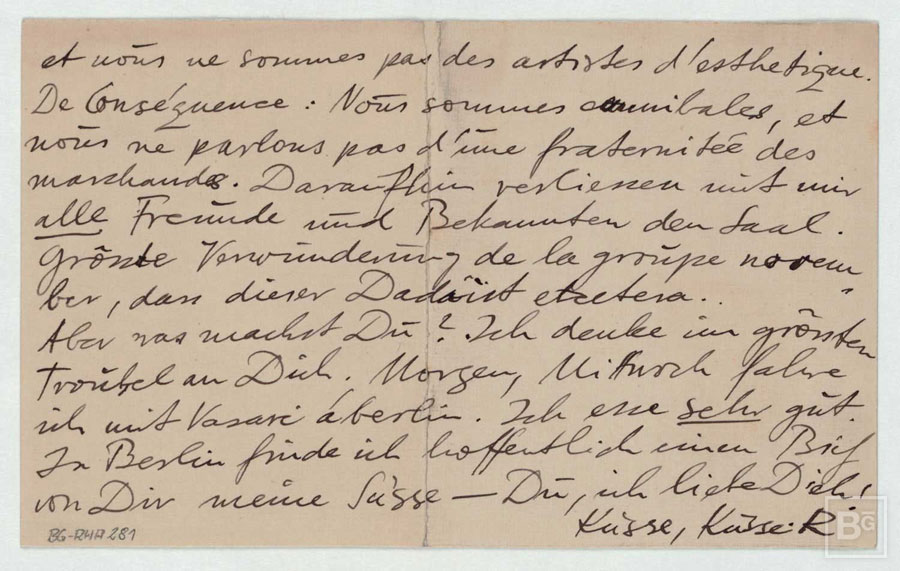 et nous ne sommes pas des artistes d'esthetique.
De Conséquence : Nous sommes cannibales, et
nous ne parlons pas d'une fraternitée des
marchands. Daraufhin verliessen mit mir
alle Freunde und Bekannten den Saal.
Grösste Verwunderung de la groupe novem
ber, dass dieser Dadaist etcetera..
Aber was machst Du? Ich denke im grössten
Troubel an Dich. Morgen, Mittwoch fahre
ich mit Vasari à berlin. Ich esse sehr gut.
In Berlin finde ich hoffentlich einen Brief
von Dir meine Süsse — Du, ich liebe Dich!
Küsse, Küsse. R
BG-RHA 281
BG